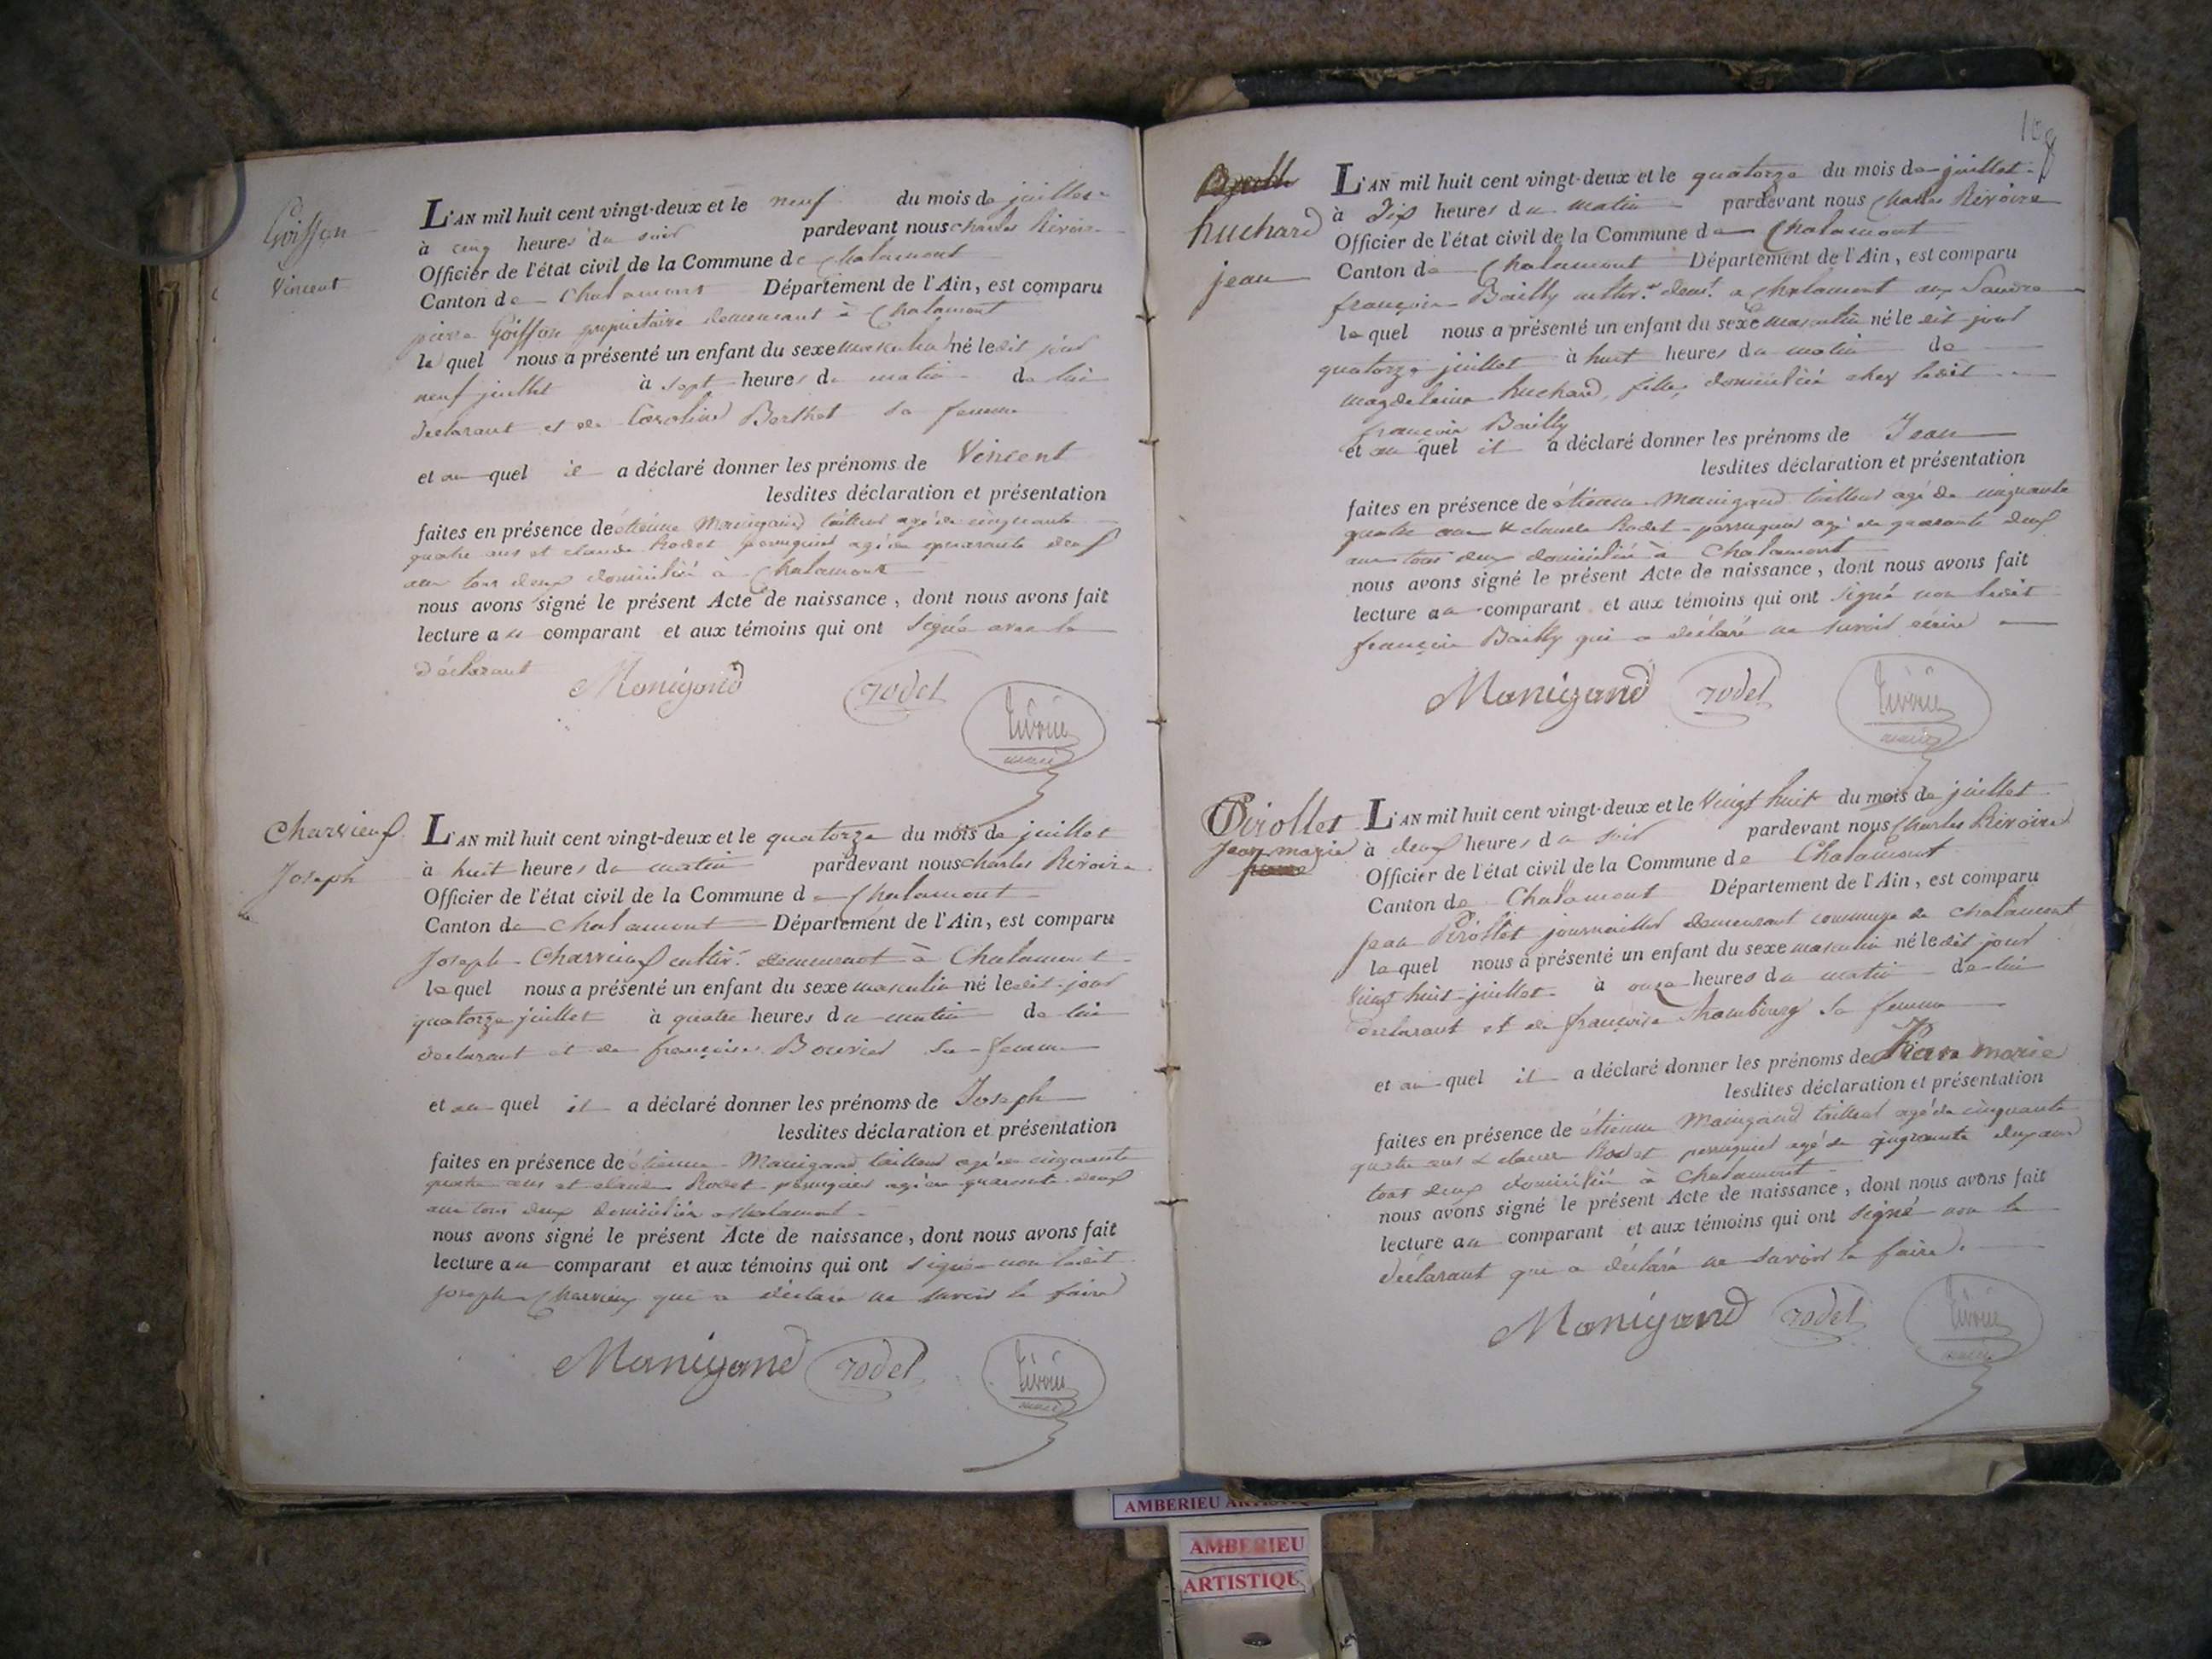 Goiffon
Vincent
L'AN mil huit cent vingt-deux et le neuf du mois de juillet
à cinq heures du soir pardevant nous charles Rivoire
Officier de l'état civil de la Commune de Chalamont
Canton de Chalamont Département de l'Ain, est comparu
pierre Goiffon propriétaire demeurant à Chalamont
le quel nous a présenté un enfant du sexe masculin né le dit jour
neuf juillet à sept heures du matin de lui
déclarant et de Caroline Berthet sa femme
et au quel il a déclaré donner les prénoms de Vincent
lesdites déclaration et présentation
faites en présence de étienne Manigand tailleur agé de cinquante
quatre ans et claude Rodet perruquier agé de quarante deux
ans tous deux domicilié à Chalamont
nous avons signé le présent Acte de naissance, dont nous avons fait
lecture au comparant et aux témoins qui ont signé avec le
déclarant
Manigand rodet Rivoire
maire
Charvieux
Joseph
L'AN mil huit cent vingt-deux et le quatorze du mois de juillet
à huit heures du matin pardevant nous charles Rivoire
Officier de l'état civil de la Commune de Chalamont
Canton de Chalamont Département de l'Ain, est comparu
Joseph Charvieux cultivr demeurant à Chalamont
le quel nous a présenté un enfant du sexe masculin né le dit jour
quatorze juillet à quatre heures du matin de lui
déclarant et de françoise Bouvier sa femme
et au quel il a déclaré donner les prénoms de Joseph
lesdites déclaration et présentation
faites en présence de étienne Manigand tailleur agé de cinquante
quatre ans et claude Rodet perruquier agé de quarante deux
ans tous deux domicilié a Chalamont
nous avons signé le présent Acte de naissance, dont nous avons fait
lecture au comparant et aux témoins qui ont signé non ledit
Joseph Charvieux qui a déclaré ne savoir le faire
Manigand rodet Rivoire
maire
108
huchard
jean
L'AN mil huit cent vingt-deux et le quatorze du mois de juillet
à Dix heures du matin pardevant nous Charles Rivoire
Officier de l'état civil de la Commune de Chalamont
Canton de Chalamont Département de l'Ain, est comparu
françois Bailly cultivr demt a chalamont aux
le quel nous a présenté un enfant du sexe masculin né le dit jour
quatorze juillet à huit heures du matin de
magdelaine huchard, fille, domiciliée chez ledit
françois Bailly
et au quel il a déclaré donner les prénoms de Jean
lesdites déclaration et présentation
faites en présence de étienne Manigand tailleur agé de cinquante
quatre ans & claude Rodet perruquier agé de quarante deux
ans tous deux domicilié à Chalamont
nous avons signé le présent Acte de naissance, dont nous avons fait
lecture au comparant et aux témoins qui ont signé non ledit
françois Bailly qui a déclaré ne savoir écrire
Manigand rodet Rivoire
maire
Pirollet
Jean marie
pierre
L'AN mil huit cent vingt-deux et le Vingt huit du mois de juillet
à deux heures du soir pardevant nous Charles Rivoire
Officier de l'état civil de la Commune de Chalamont
Canton de Chalamont Département de l'Ain, est comparu
Jean Pirollet journaillier demeurant commune de chalamont
le quel nous a présenté un enfant du sexe masculin né le dit jour
Vingt huit juillet à onze heures du matin de lui
déclarant et de françoise sa femme
et au quel il a déclaré donner les prénoms de Pierre marie
lesdites déclaration et présentation
faites en présence de étienne Manigand tailleur agé de cinquante
quatre ans & claude Rodet perruquier agé de quarante deux ans
tous deux domicilié à Chalamont
nous avons signé le présent Acte de naissance, dont nous avons fait
lecture au comparant et aux témoins qui ont signé non le
déclarant qui a déclaré ne savoir le faire.
Manigand rodet Rivoire
maire
AMBERIEU ARTISTIQ
AMBERIEU
ARTISTIQU